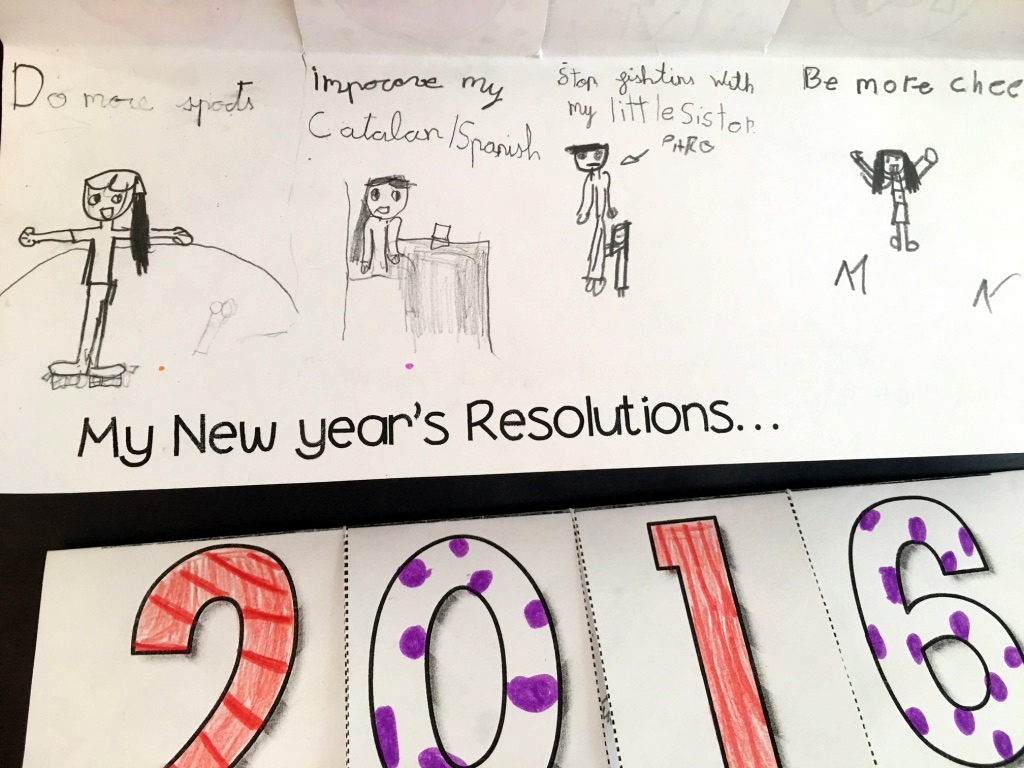 Do more spods
Imporove my
Catalan/Spanish
Stop gishting with
my little Sister
Be more chee
My New year's Resolutions...
2016